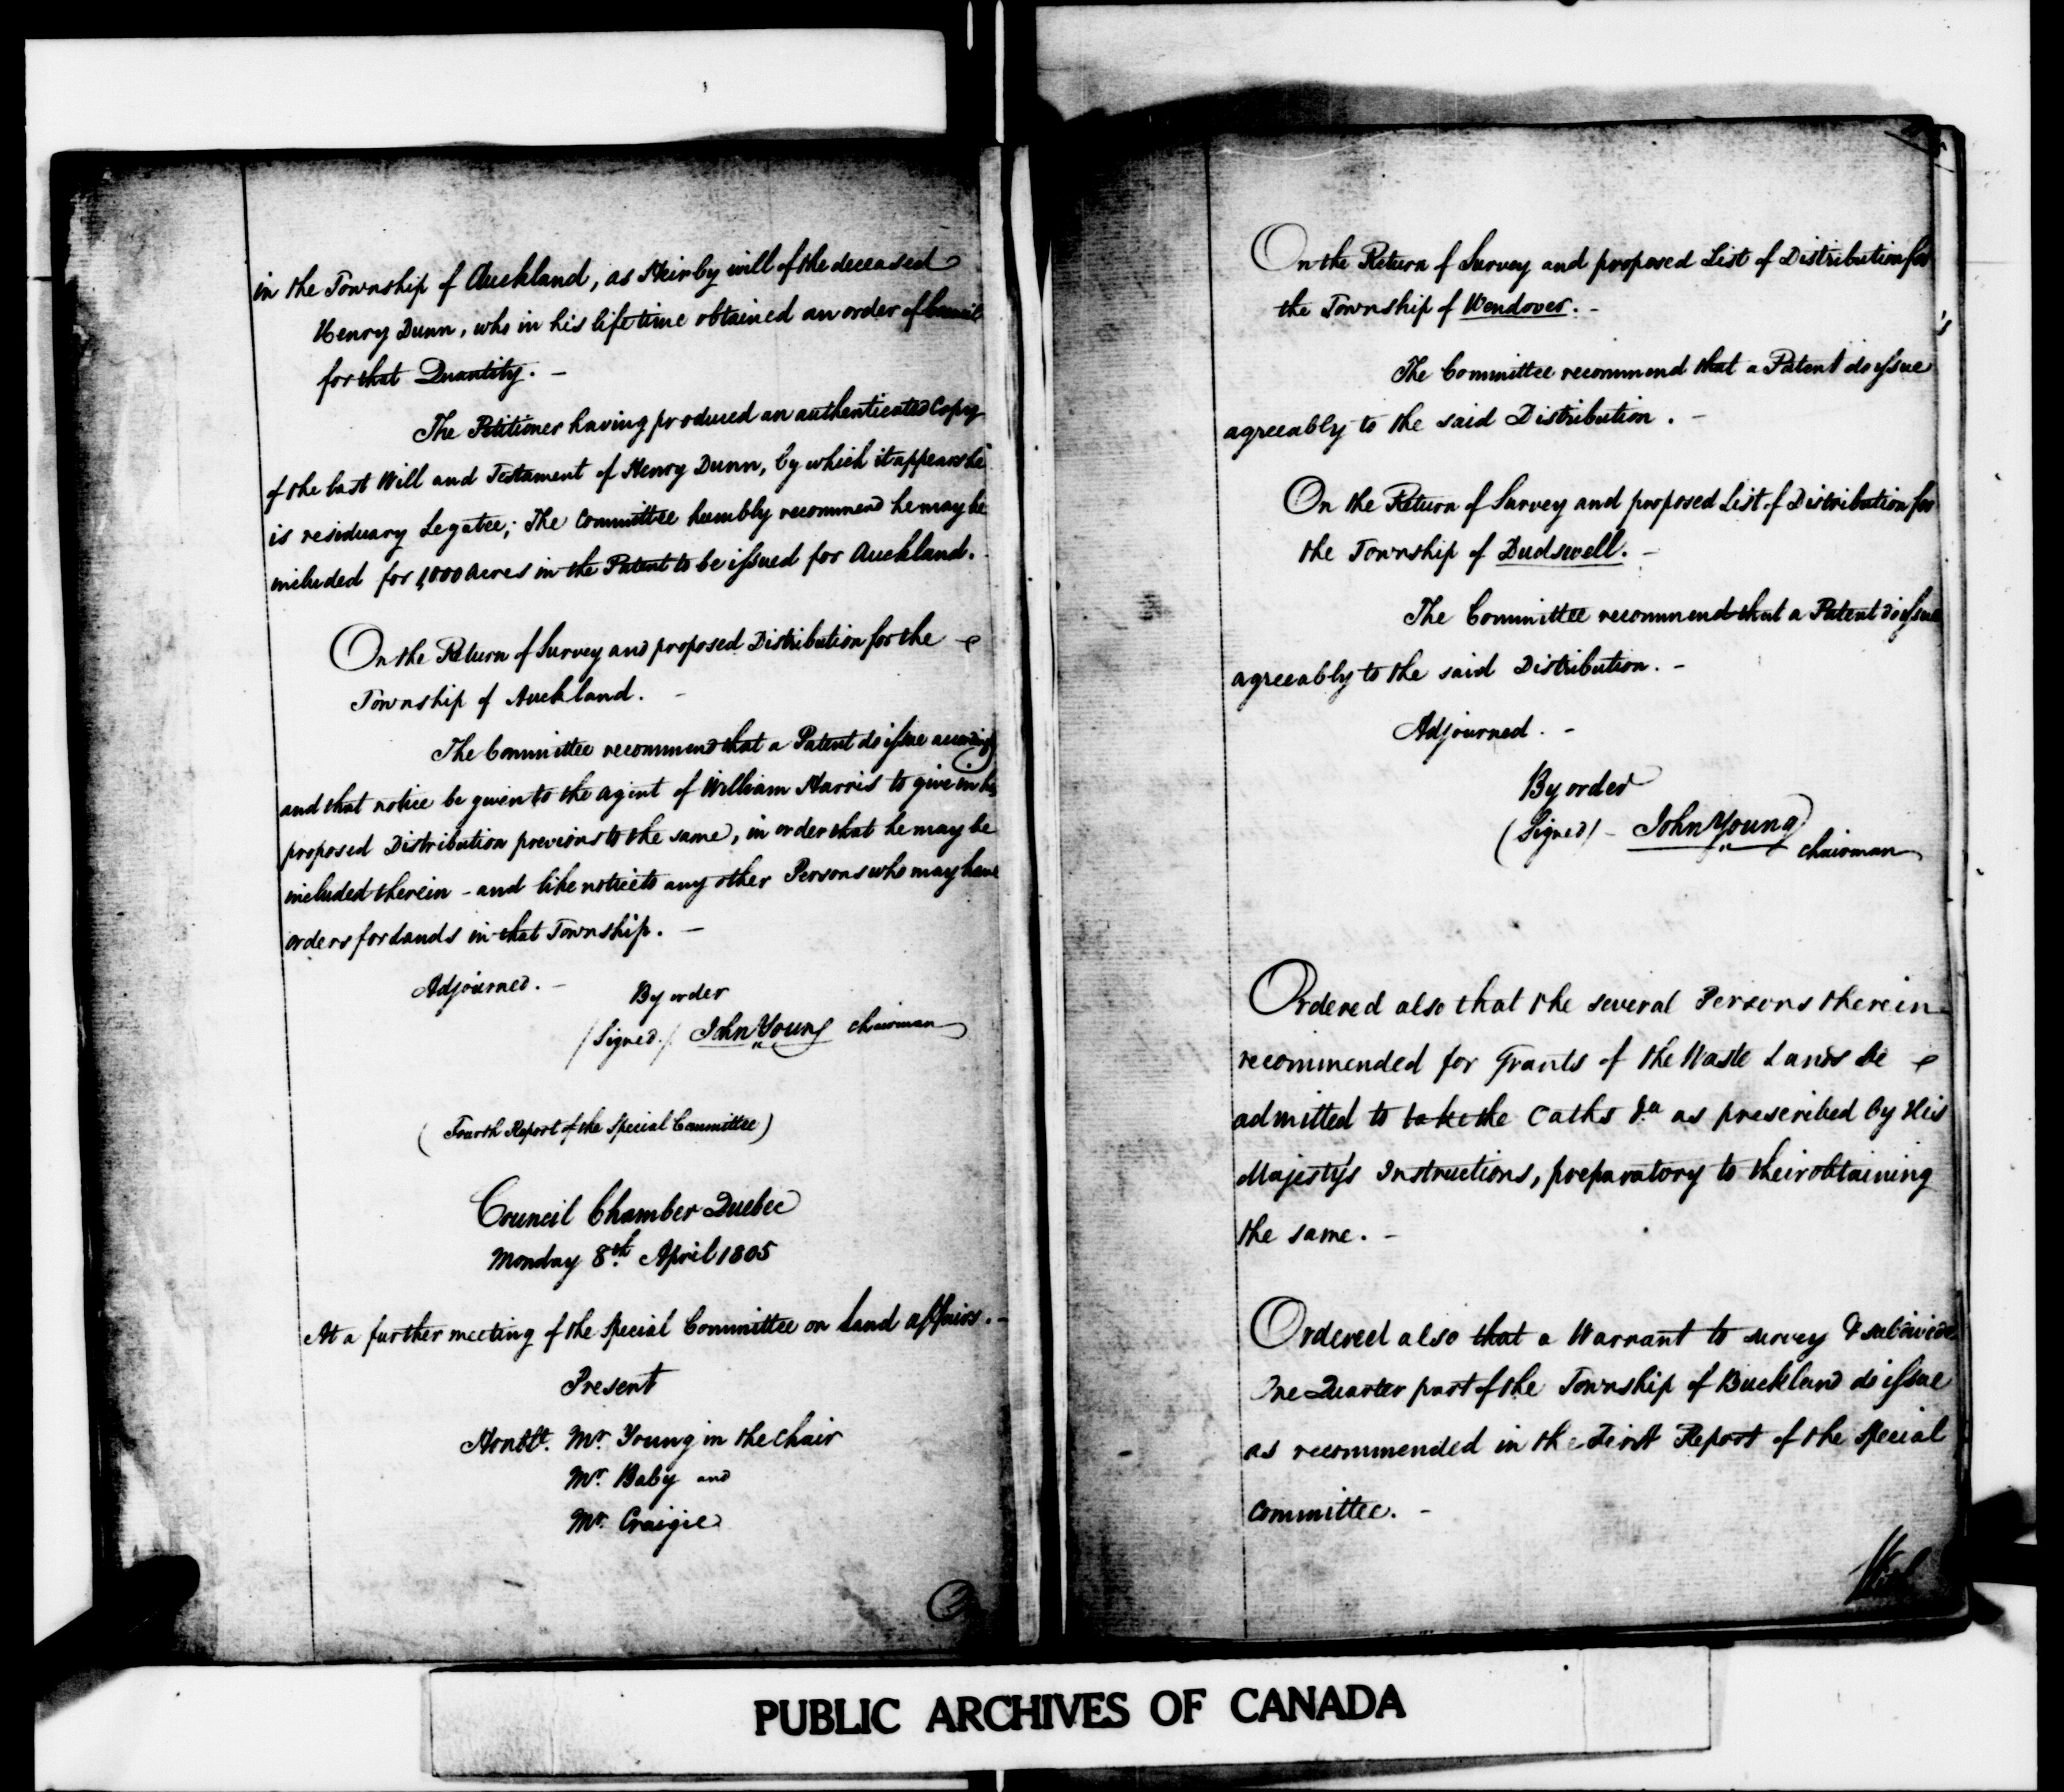 in the Township of Auckland, as Heir by will of the deceased
Henry Dunn, who in his life time obtained an order of Council
for that Quantity. -
The Petitioner having produced an authenticated Copy
of the last Will and Testament of Henry Dunn, by which it appears he
is residuary Legatee; The Committee humbly recommend he may be
included for 1,000 Acres in the Patent to be issued for Auckland.
On the Return of Survey and proposed Distribution for the
Township of Auckland. -
The Committee recommend that a Patent do issue accordingly
and that notice be given to the Agent of William Harris to give in his
proposed Distribution previous to the same, in order that he may be
included therein - and like notice to any other Persons who may have
orders for Lands in that Township. -
Adjourned. -
By order
(Signed.) John Young Chairman
(Fourth Report of the Special Committee)
Council Chamber Quebec
Monday 8th April 1805
At a further meeting of the Special Committee on Land affairs. -
Present
Honble. Mr. Young in the Chair
Mr. Baby and
Mr. Craigie
On the Return of Survey and proposed List of Distribution for
the Township of Wendover. -
The Committee recommend that a Patent do issue
agreeably to the said Distribution. -
On the Return of Survey and proposed List of Distribution for
the Township of Dudswell. -
The Committee recommend that a Patent do issue
agreeably to the said Distribution. -
Adjourned. -
By order
(Signed) - John Young
Chairman
Ordered also that the several Persons therein
recommended for Grants of the Waste Lands be
admitted to take the Oaths &a as prescribed by His
Majesty's Instructions, preparatory to their obtaining
the same. -
Ordered also that a Warrant to survey & subdivide
One Quarter part of the Township of Buckland do issue
as recommended in the First Report of the Special
Committee. -
PUBLIC ARCHIVES OF CANADA